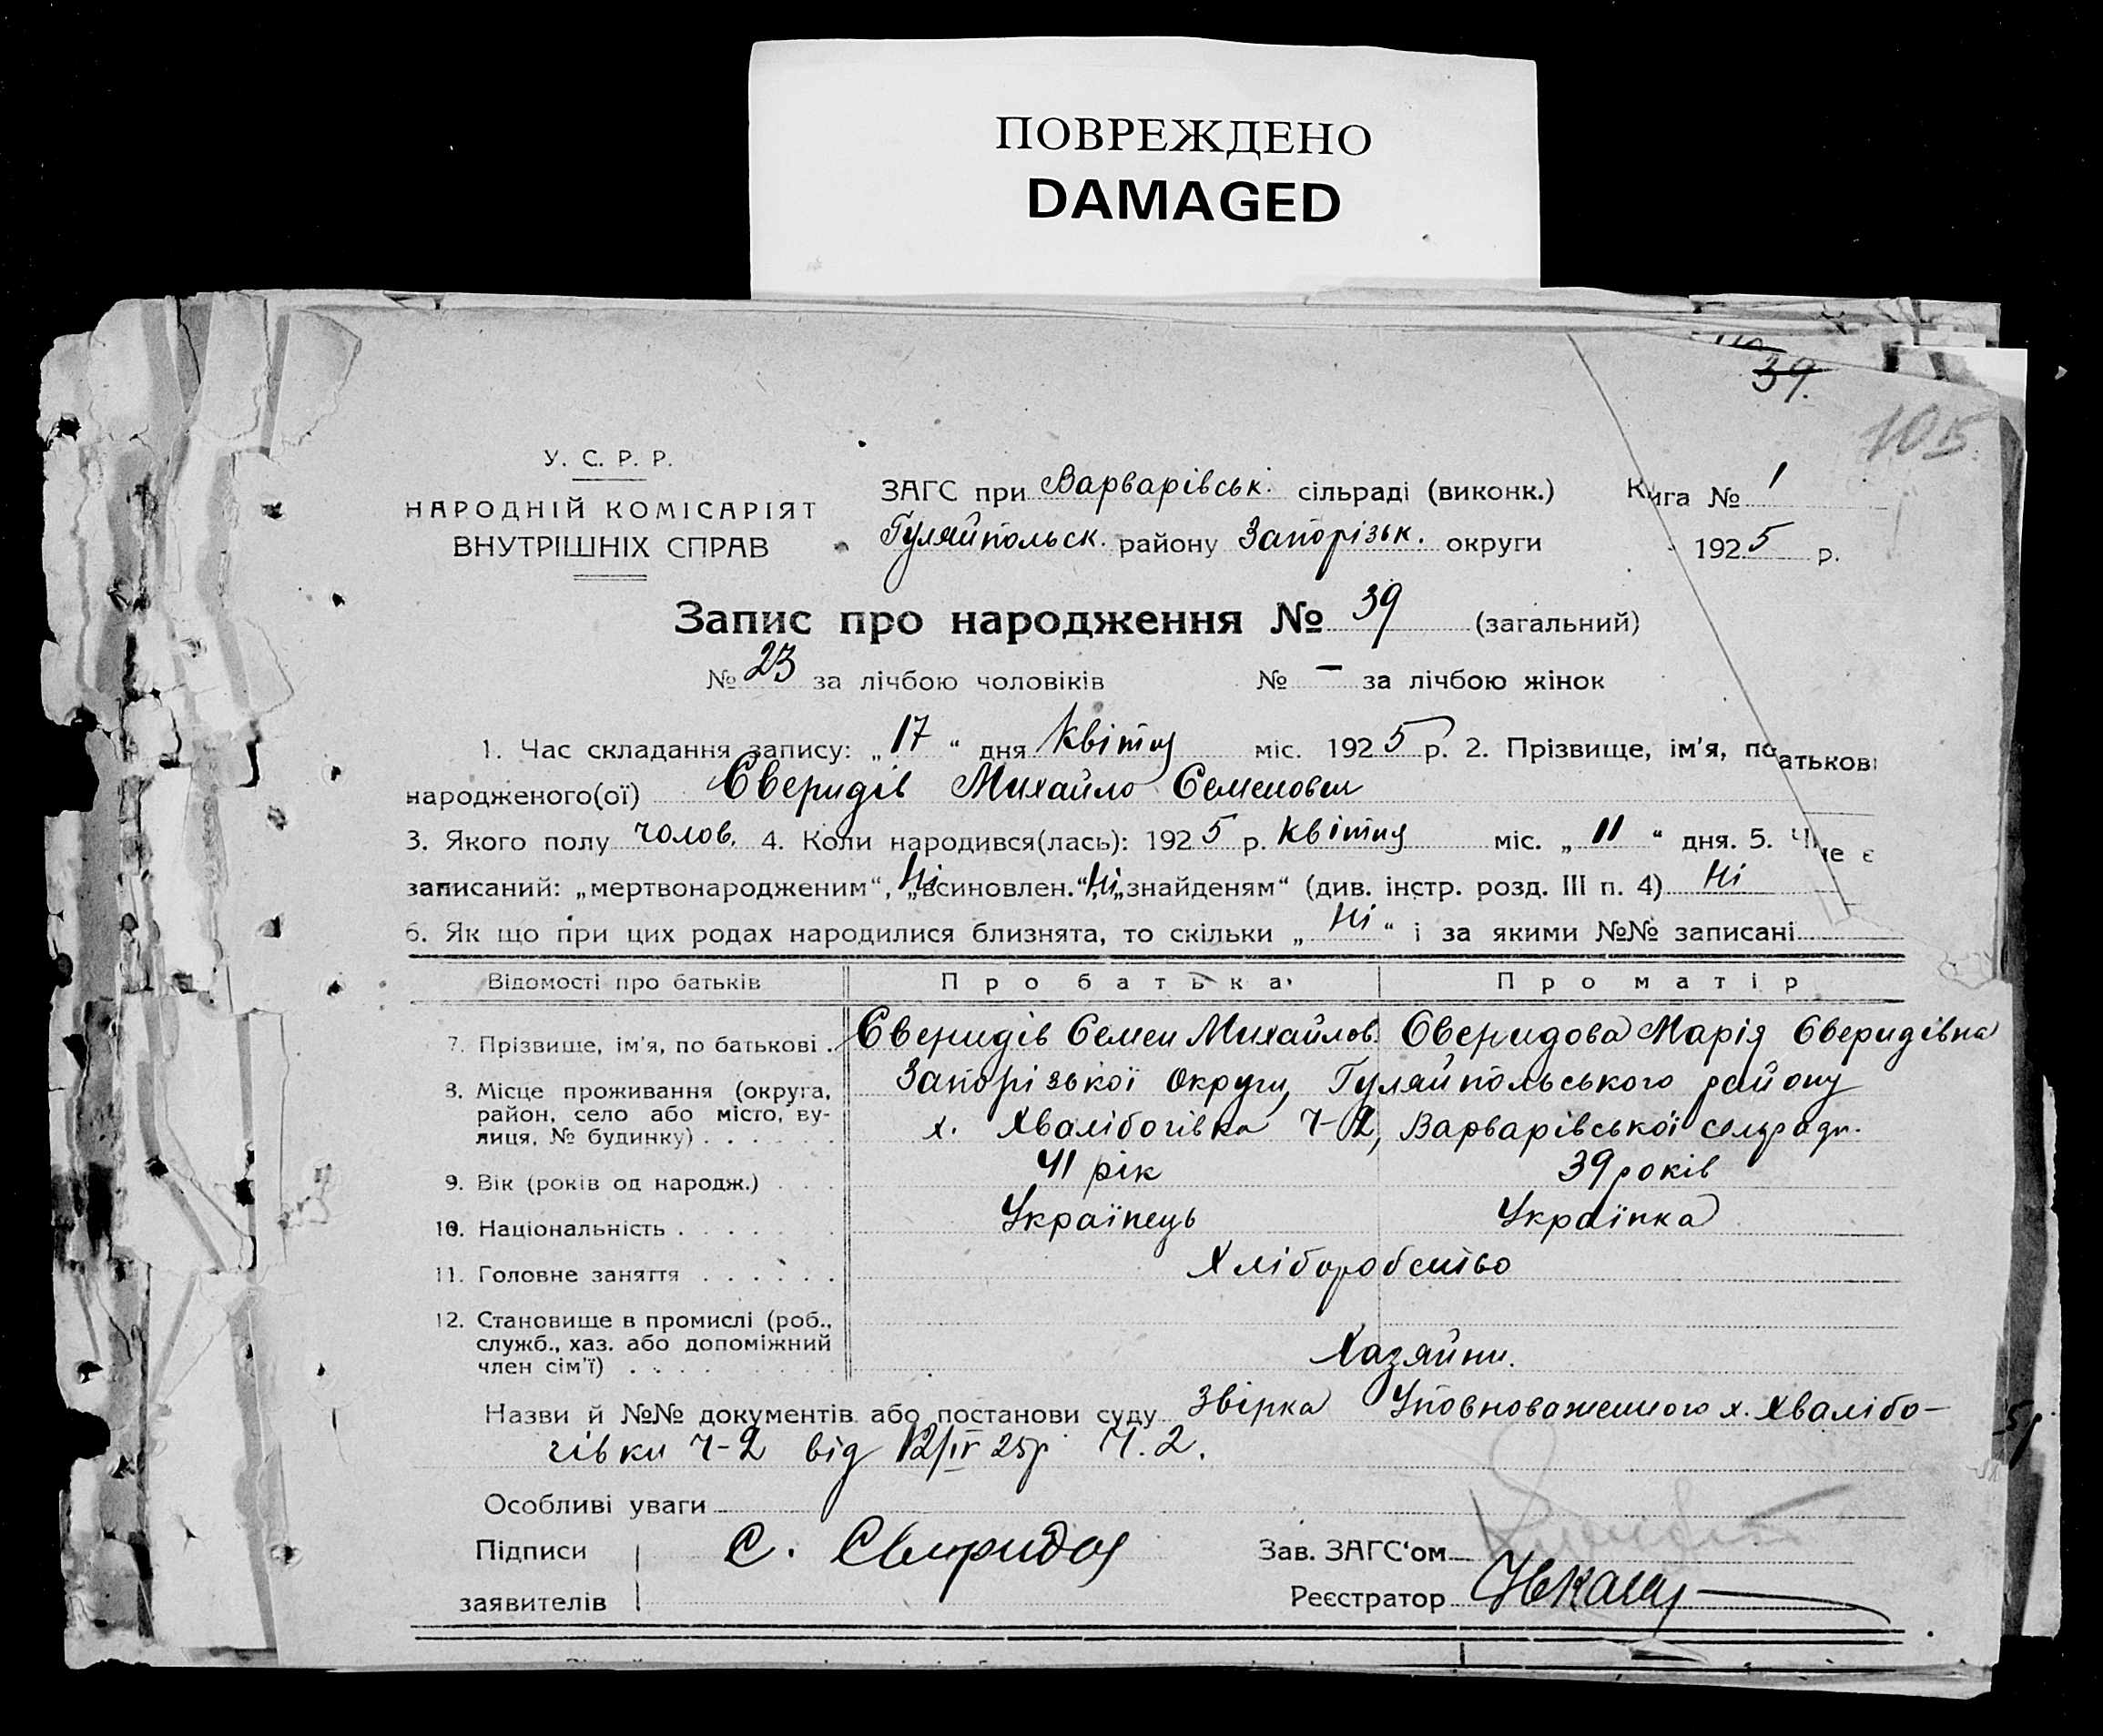 ПОВРЕЖДЕНО
DAMAGED
39.
105.
У. С. Р. Р.
НАРОДНІЙ КОМІСАРІЯТ
ВНУТРІШНІХ СПРАВ
ЗАГС при Варварівськ. сільраді (виконк.)
Гуляйпольск. району Запорізьк. округи
Книга № 1
1925 р.
Запис про народження № 39 (загальний)
№ 23 за лічбою чоловіків № – за лічбою жінок
1. Час складання запису: „17“ дня Квітня міс. 1925 р. 2. Прізвище, ім'я, по батькові
народженого(ої) Сверидів Михайло Семенович
3. Якого полу чолов. 4. Коли народився(лась): 1925 р. Квітня міс. „11“ дня. 5. Чи не є
записаний: „мертвонародженим“, Ні „всиновлен.“ Ні „знайденям“ (див. інстр. розд. III п. 4) Ні
6. Як що при цих родах народилися близнята, то скільки „Ні“ і за якими №№ записані
Відомості про батьків Про батька Про матір
7. Прізвище, ім'я, по батькові . Сверидів Семен Михайлов. Сверидова Марія Сверидівна
8. Місце проживання (округа, Запорізької Округи, Гуляйпольського району
район, село або місто, ву-
лиця, № будинку) . . . . . . х. Хвалібогівка Ч-2, Варварівської сельради.
9. Вік (років од народж.) . . . 41 рік 39 років
10. Національність . . . . . . . Українець Українка
11. Головне заняття . . . . . . Хліборобство
12. Становище в промислі (роб.,
служб., хаз. або допоміжний Хазяйни.
член сім'ї) . . . .
Назви й №№ документів або постанови суду Звірка Уповноваженного х. Хвалібо-
гівки Ч-2 від 12/IV 25р Ч. 2.
Особливі уваги
Підписи С. Свиридов Зав. ЗАГС'ом
заявителів Реєстратор
5р.